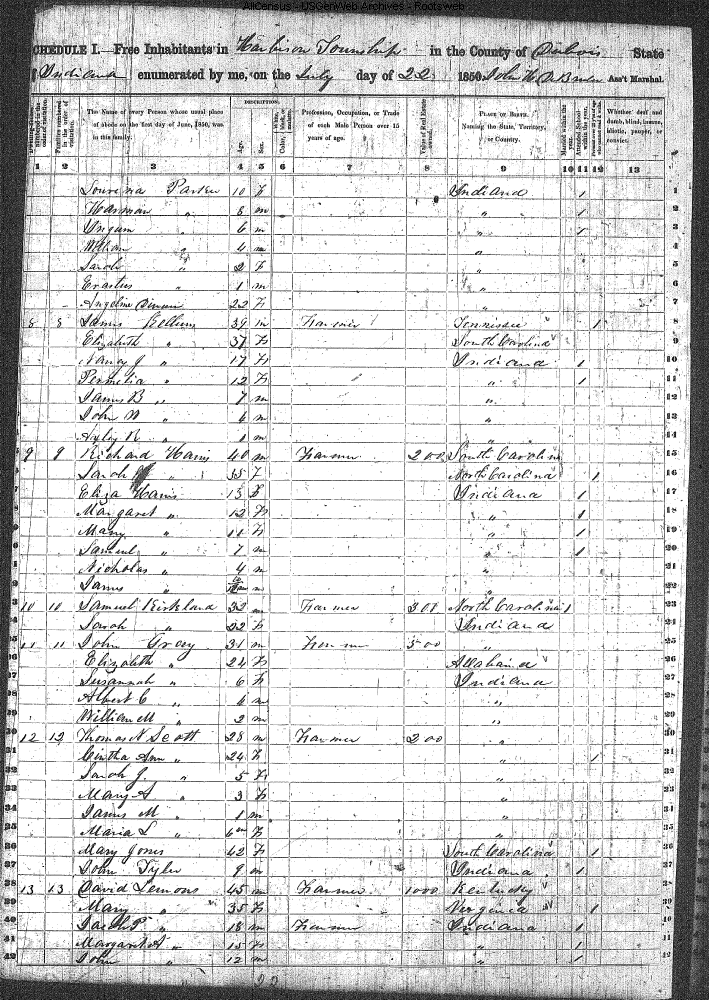 AllCensus - USGenWeb Archives - Rootsweb
SCHEDULE I.—Free Inhabitants in Harbison Township in the County of Dubois State
of Indiana enumerated by me, on the July day of 22 1850. John H. Ass't Marshal.
DESCRIPTION.
The Name of every Person whose usual place of abode on the first day of June, 1850, was in this family.
Age.
Sex.
Profession, Occupation, or Trade of each Male Person over 15 years of age.
Value of Real Estate owned.
PLACE OF BIRTH. Naming the State, Territory, or Country.
Married within the year.
Attended School within the year.
Whether deaf and dumb, blind, insane, idiotic, pauper, or convict.
1 2 3 4 5 6 7 8 9 10 11 12 13
Parker 10 F Indiana 1 1
Harman " 8 m " 1 2
6 m " 1 3
William " 4 m " 4
Sarah " 2 F " 5
Erastus " 1 m " 6
Angeline 22 F " 7
8 8 James Kellums 39 m Farmer Tennissee 1 8
Elizabeth " 37 F South Carolina 9
Nancy J " 17 F Indiana 1 10
Permelia " 12 F " 1 11
James B " 7 m " 12
John " 6 m " 13
R " 1 m " 14
9 9 Richard Harris 40 m Farmer 200 South Carolina 15
Sarah " 35 F North Carolina 1 16
Eliza Harris 13 F Indiana 1 17
Margaret " 12 F " 1 18
Mary " 11 F " 1 19
Samuel " 7 m " 1 20
Nicholas " 4 m " 21
James " m " 22
10 10 Samuel Kirkland 32 m Farmer 300 North Carolina 1 23
Sarah " 22 F Indiana 24
11 11 John Gray 31 m Farmer 500 " 25
Elizabeth " 24 F Allabama 26
Susannah " 6 F Indiana 27
Albert C " m " 28
William M " 2 m " 29
12 12 Thomas N Scott 28 m Farmer 200 " 30
Cintha Ann " 24 F " 1 31
Sarah J. " 5 F " 32
Mary A " 3 F " 33
James M " 1 m " 34
Maria L " F " 35
Mary Jones 42 F South Carolina 1 36
John Tyler 9 m Indiana 1 37
13 13 David Lemons 45 m Farmer 1000 Kentucky 38
Mary " 35 F Virginia 1 39
P " 18 m Farmer Indiana 1 40
Margaret A " 15 F " 1 41
John " 12 m " 1 42